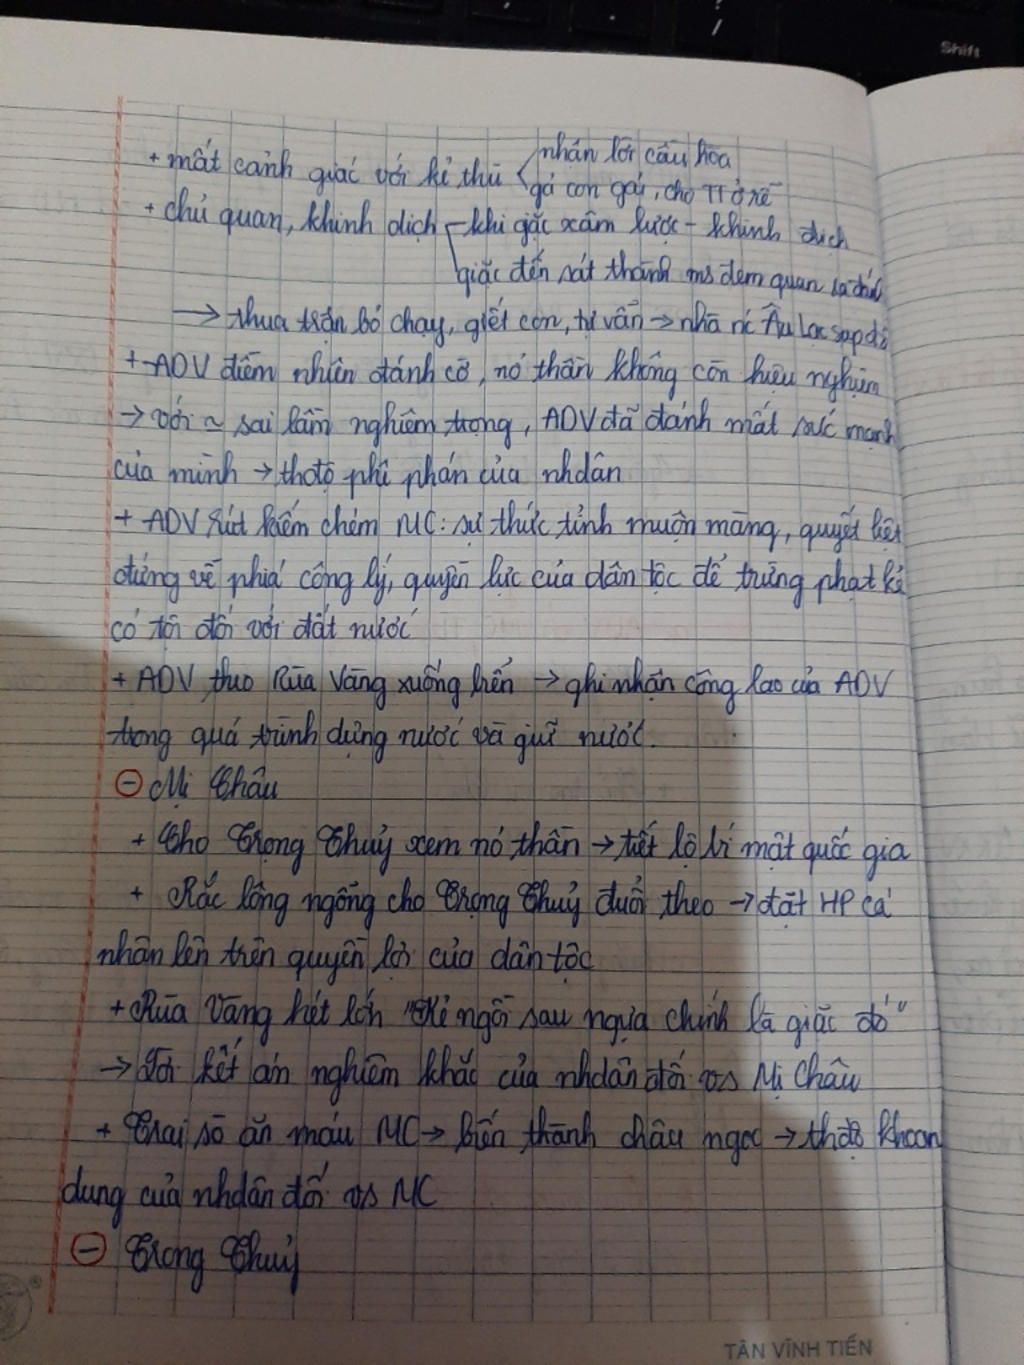 Shift
nhận lời cầu hòa
+ mất cảnh giác với kẻ thù
gả con gái, cho TT ở rể
+ chủ quan, khinh địch
khi giặc xâm lược - khinh địch
giặc đến sát thành ms đem quân ra
→ thua trận bỏ chạy, giết con, tự vẫn → nhà nc Âu Lạc sụp đổ
+ ADV điềm nhiên đánh cờ, nỏ thần không còn hiệu nghiệm
→ với ~ sai lầm nghiêm trọng, ADV đã đánh mất sức mạnh
của mình → thđộ phê phán của nhdân
+ ADV rút kiếm chém MC: sự thức tỉnh muộn màng, quyết liệt
đứng về phía công lý, quyền lực của dân tộc để trừng phạt kẻ
có tội đối với đất nước
+ ADV theo Rùa Vàng xuống biển → ghi nhận công lao của ADV
trong quá trình dựng nước và giữ nước.
⊖ Mị Châu
+ Cho Trọng Thuỷ xem nỏ thần → tiết lộ bí mật quốc gia
+ Rắc lông ngỗng cho Trọng Thuỷ đuổi theo → đặt HP cá
nhân lên trên quyền lợi của dân tộc
+ Rùa Vàng hét lớn "Kẻ ngồi sau ngựa chính là giặc đó"
→ Lời kết án nghiêm khắc của nhdân đối vs Mị Châu
+ Trai sò ăn máu MC → biến thành châu ngọc → thđộ khoan
dung của nhdân đối vs MC
⊖ Trọng Thuỷ
TÂN VĨNH TIẾN